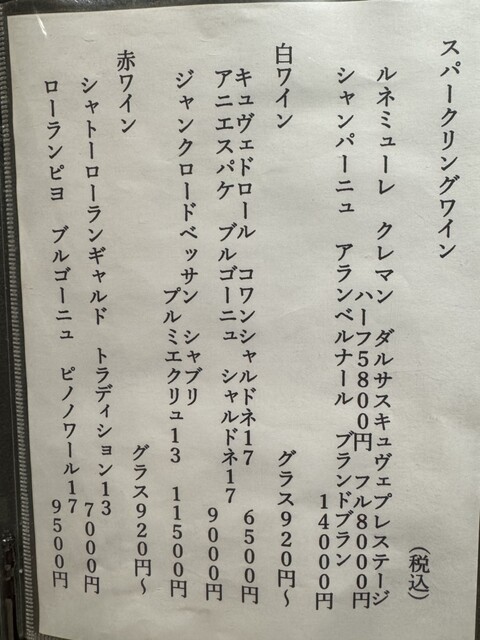 スパークリングワイン
（税込）
ルネミューレ　クレマン　ダルサスキュヴェプレステージ
ハーフ5800円　フル8000円
シャンパーニュ　アランベルナール　ブランドブラン
14000円
白ワイン　グラス920円～
キュヴェドロール　コワンシャルドネ17　6500円
アニエスパケ　ブルゴーニュ　シャルドネ17
9000円
ジャンクロードベッサン　シャブリ
プルミエクリュ13　11500円
赤ワイン　グラス920円～
シャトーローランギャルド　トラディション13
7000円
ローランピヨ　ブルゴーニュ　ピノノワール17
9500円